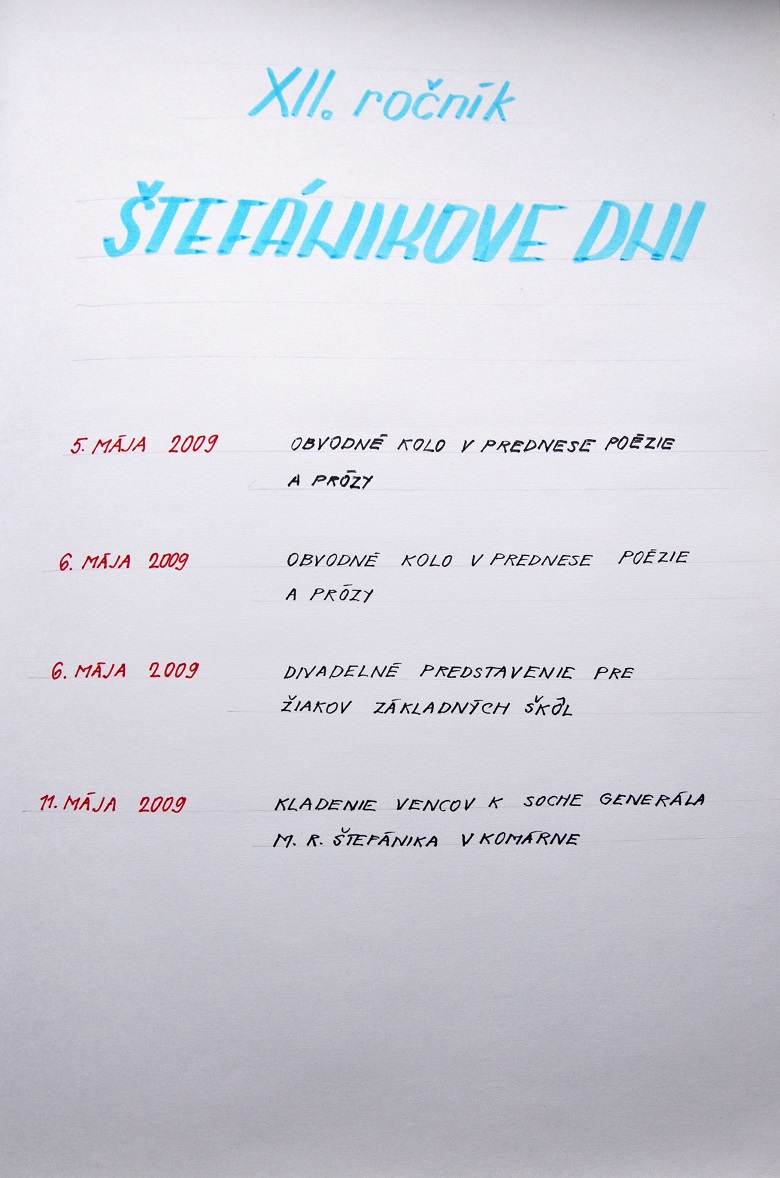 XII. ročník
ŠTEFÁNIKOVE DNI
5. MÁJA 2009 OBVODNÉ KOLO V PREDNESE POÉZIE
A PRÓZY
6. MÁJA 2009 OBVODNÉ KOLO V PREDNESE POÉZIE
A PRÓZY
6. MÁJA 2009 DIVADELNÉ PREDSTAVENIE PRE
ŽIAKOV ZÁKLADNÝCH ŠKÔL
11. MÁJA 2009 KLADENIE VENCOV K SOCHE GENERÁLA
M. R. ŠTEFÁNIKA V KOMÁRNE